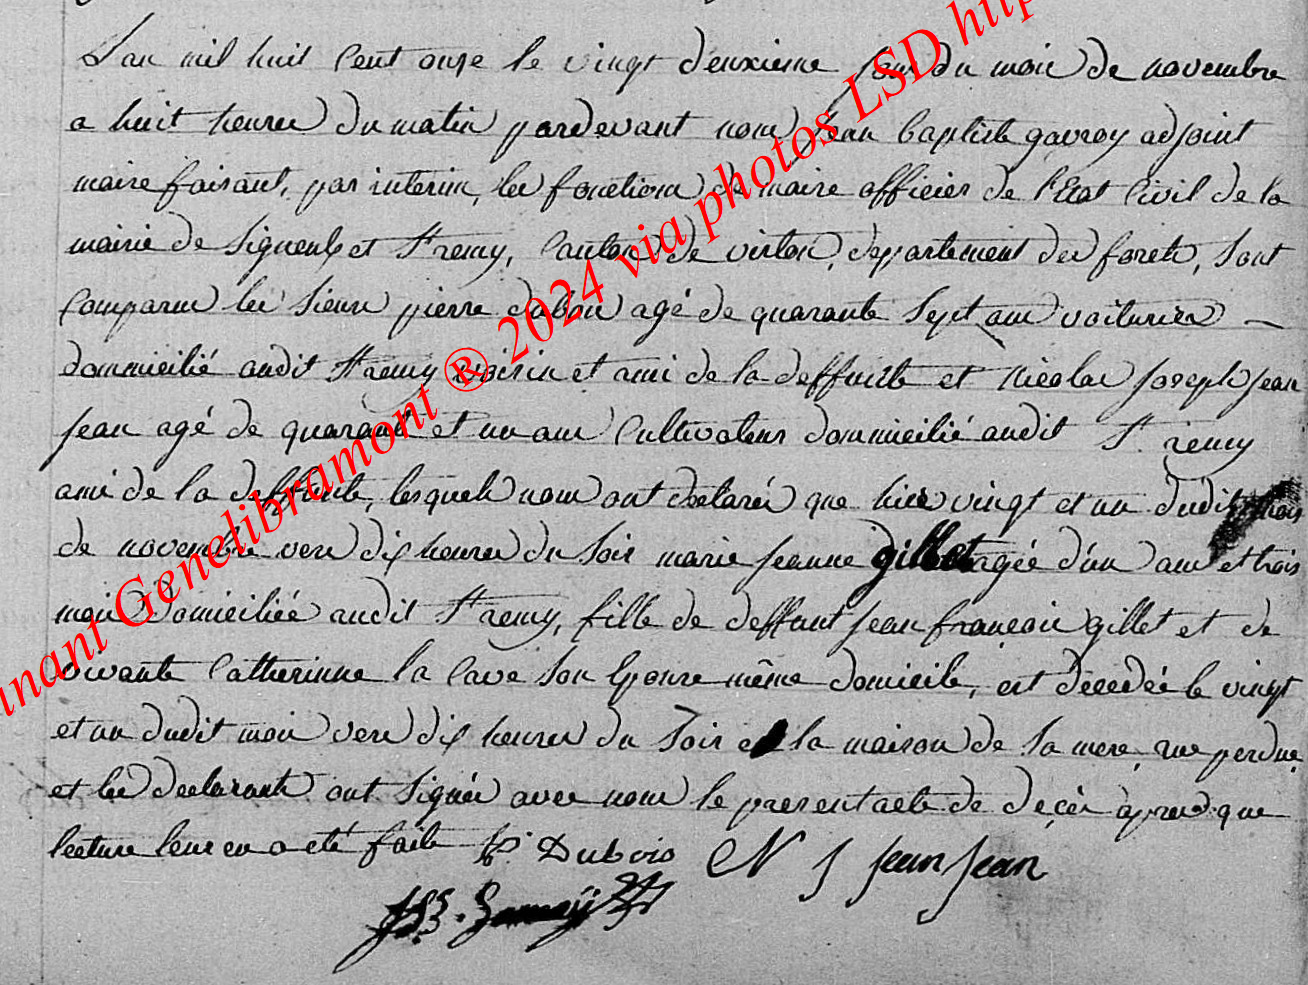 L'an mil huit cent onze le vingt deuxieme jour du mois de novembre
a huit heures du matin pardevant nous jean baptiste gavroy adjoint
maire faisant, par interim, les fonctions de maire officier de l'Etat Civil de la
mairie de Signeulx et St remy, Canton de virton, departement des forets, Sont
Comparus les Sieurs pierre dubois agé de quarante Sept ans voiturier
dommicilié audit St remy voisin et ami de la deffunte et Nicolas joseph jean
jean agé de quarante et un ans Cultivateur dommicilié audit St remy
ami de la deffunte, lesquels nous ont declarés que hier vingt et un dudit mois
de novembre vers dix heures du Soir marie jeanne gillet agée d'un ans et trois
mois Domiciliée audit St remy, fille de deffunt jean françois gillet et de
vivante Catherinne la Cave Son Epouse même domicile, est décedée le vingt
et un dudit mois vers dix heures du Soir la maison de Sa mere, rue perdue
et les declarants ont Signés avec nous le present acte de decés apres que
lecture leur en a eté faite P. Dubois N J jean jean